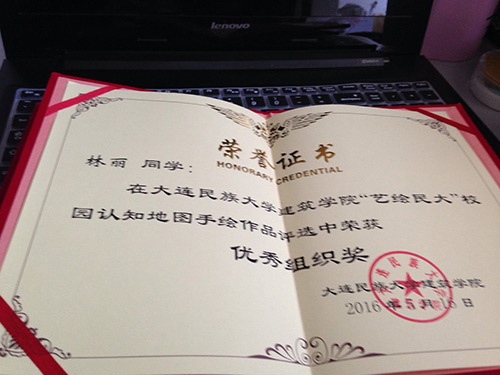 lenovo
荣誉证书
HONORARY CREDENTIAL
林丽 同学：
在大连民族大学建筑学院“艺绘民大”校
园认知地图手绘作品评选中荣获
优秀组织奖
大连民族大学建筑学院
2016 年 5 月 16 日